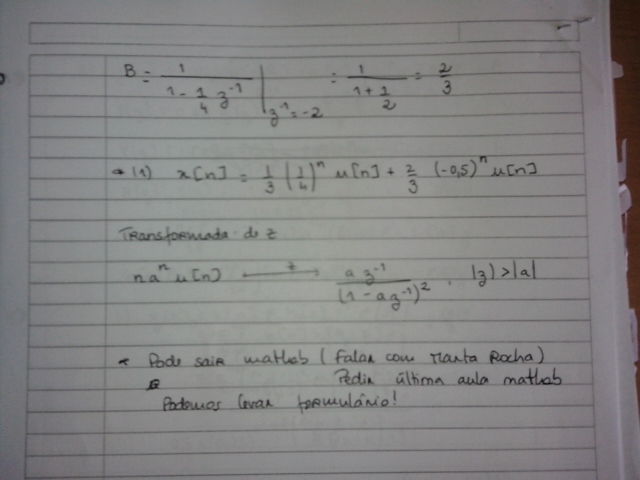 B = 1/(1 - 1/4 z⁻¹) | z⁻¹=-2 = 1/(1 + 1/2) = 2/3
(1) x[n] = 1/3 (1/4)ⁿ u[n] + 2/3 (-0,5)ⁿ u[n]
Transformada de z
n aⁿ u[n] ⟶ᶻ a z⁻¹/(1 - a z⁻¹)² , |z| > |a|
* Pode sair matlab (Falar com Marta Rocha)
Pedir última aula matlab
Podemos levar formulário!